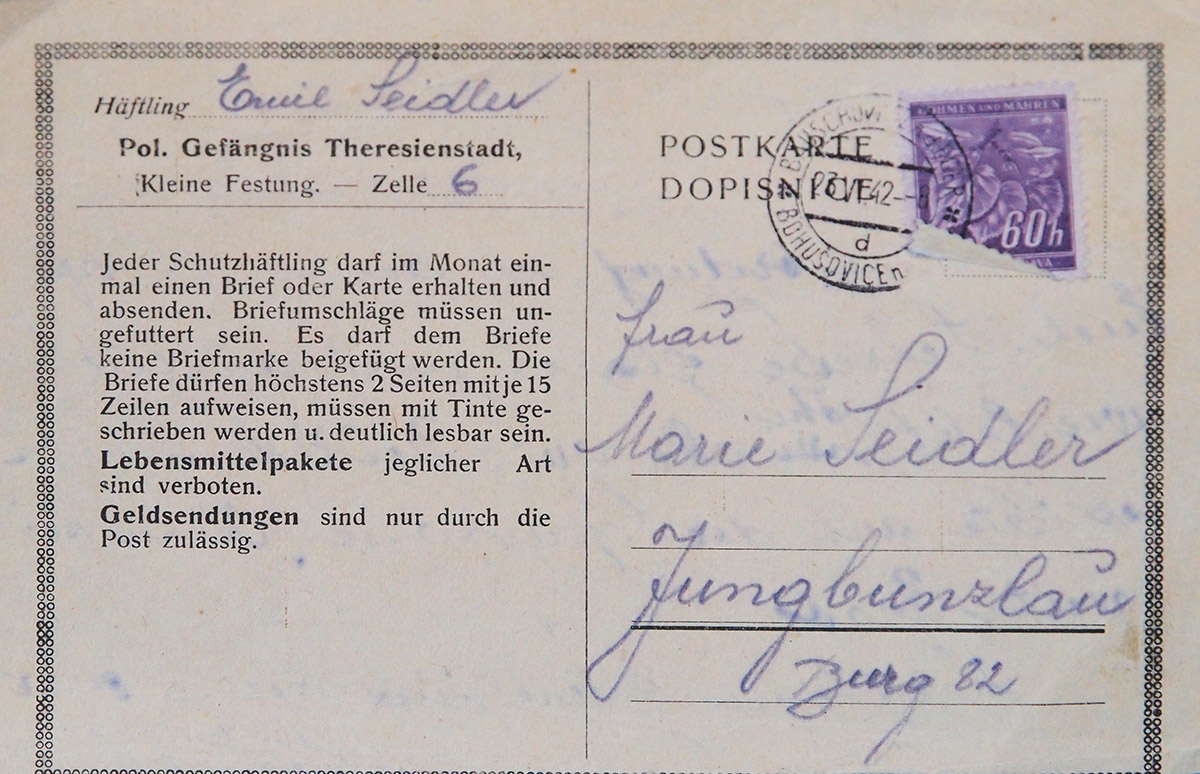 Häftling Emil Seidler
Pol. Gefängnis Theresienstadt,
Kleine Festung. — Zelle 6
Jeder Schutzhäftling darf im Monat ein-
mal einen Brief oder Karte erhalten und
absenden. Briefumschläge müssen un-
gefuttert sein. Es darf dem Briefe
keine Briefmarke beigefügt werden. Die
Briefe dürfen höchstens 2 Seiten mit je 15
Zeilen aufweisen, müssen mit Tinte ge-
schrieben werden u. deutlich lesbar sein.
Lebensmittelpakete jeglicher Art
sind verboten.
Geldsendungen sind nur durch die
Post zulässig.
POSTKARTE
DOPISNICE
BÖHMEN UND MÄHREN
60h
23.VI.42
d
BOHUŠOVICE n
Frau
Marie Seidler
Jungbunzlau
Burg 82